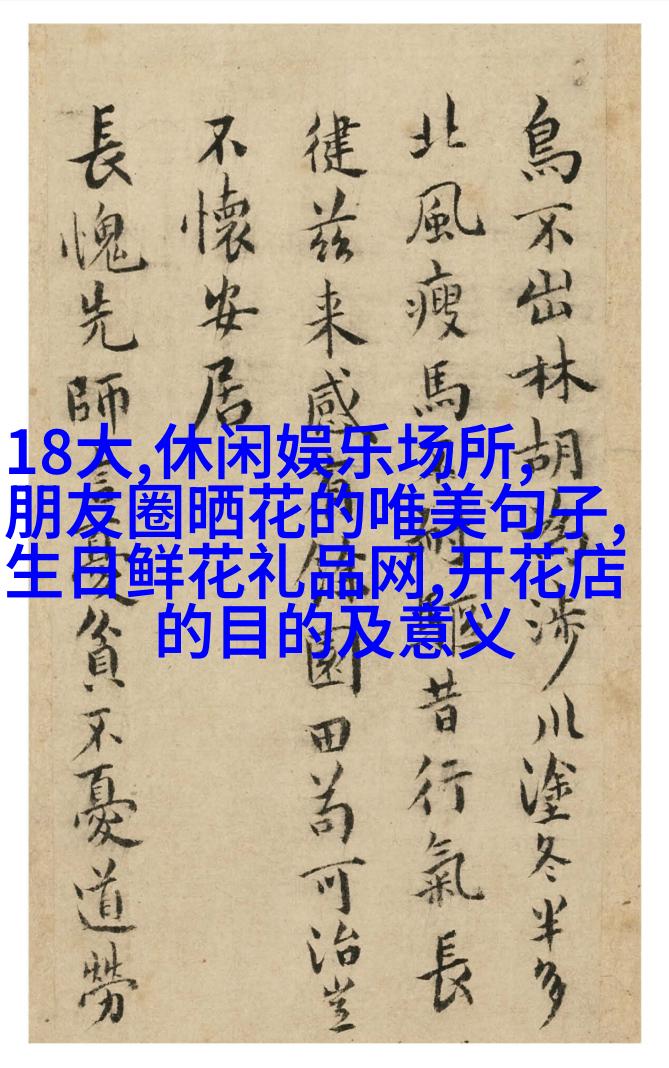 18大,休闲娱乐场所,
朋友圈晒花的唯美句子,
生日鲜花礼品网,开花店
的目的及意义
鳥不出林胡涉川塗冬半多
北風瘦馬驅昔行氣長
健茲来感園田苟可治豈
不懷安居
長愧先師貧不憂道勞